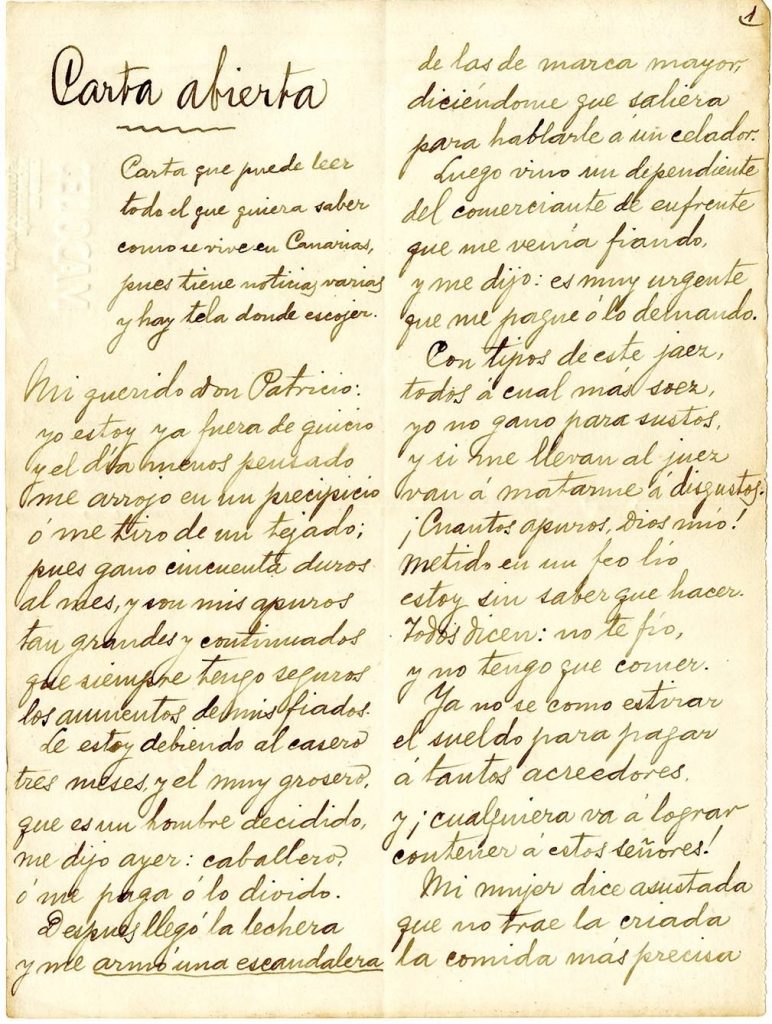 Carta abierta
Carta que puede leer
todo el que quiera saber
como se vive en Canarias,
pues tiene noticias varias
y hay tela donde escojer.
Mi querido Don Patricio:
yo estoy ya fuera de quicio
y el día menos pensado
me arrojo en un precipicio
ó me tiro de un tejado;
pues gano cincuenta duros
al mes, y son mis apuros
tan grandes y continuados
que siempre tengo seguros
los aumentos de mis fiados.
Le estoy debiendo al casero
tres meses, y el muy grosero,
que es un hombre decidido,
me dijo ayer: caballero,
ó me paga ó lo divido.
Despues llegó la lechera
y me armó una escandalera
1
de las de marca mayor,
diciéndome que saliera
para hablarle á un celador.
Luego vino un dependiente
del comerciante de enfrente
que me venía fiando,
y me dijo: es muy urgente
que me pague ó lo demando.
Con tipos de este jaez,
todos á cual más soez,
yo no gano para sustos,
y si me llevan al juez
van á matarme á disgustos.
¡Cuantos apuros, Dios mío!
Metido en un feo lío
estoy sin saber que hacer.
Todos dicen: no te fío,
y no tengo que comer.
Ya no se como estirar
el sueldo para pagar
á tantos acreedores,
y ¡cualquiera va á lograr
contener á estos señores!
Mi mujer dice asustada
que no trae la criada
la comida más precisa